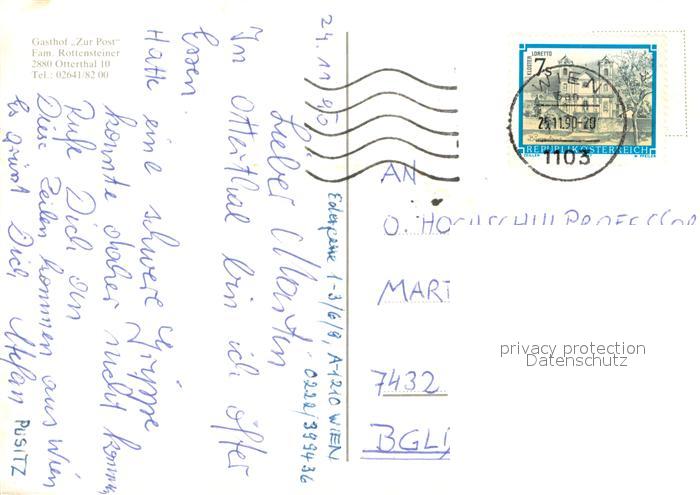 Gasthof „Zur Post"
Fam. Rottensteiner
2880 Otterthal 10
Tel.: 02641/82 00
24.11.90
Lieber Martin
In Otterthal bin ich öfter
Essen.
Hatte eine schwere Grippe
konnte daher nicht kommen
Rufe Dich an
Diese Zeilen kommen aus Wien
Es grüsst Dich Stefan
PUSITZ
1-3/6/9, A-1210 WIEN
0222/399436
KLOSTER LORETTO
7 S
REPUBLIK ÖSTERREICH
WIEN
25.11.90-20
1103
AN
O. HOCHSCHULPROFESSOR
MART
7432
BGL
privacy protection
Datenschutz